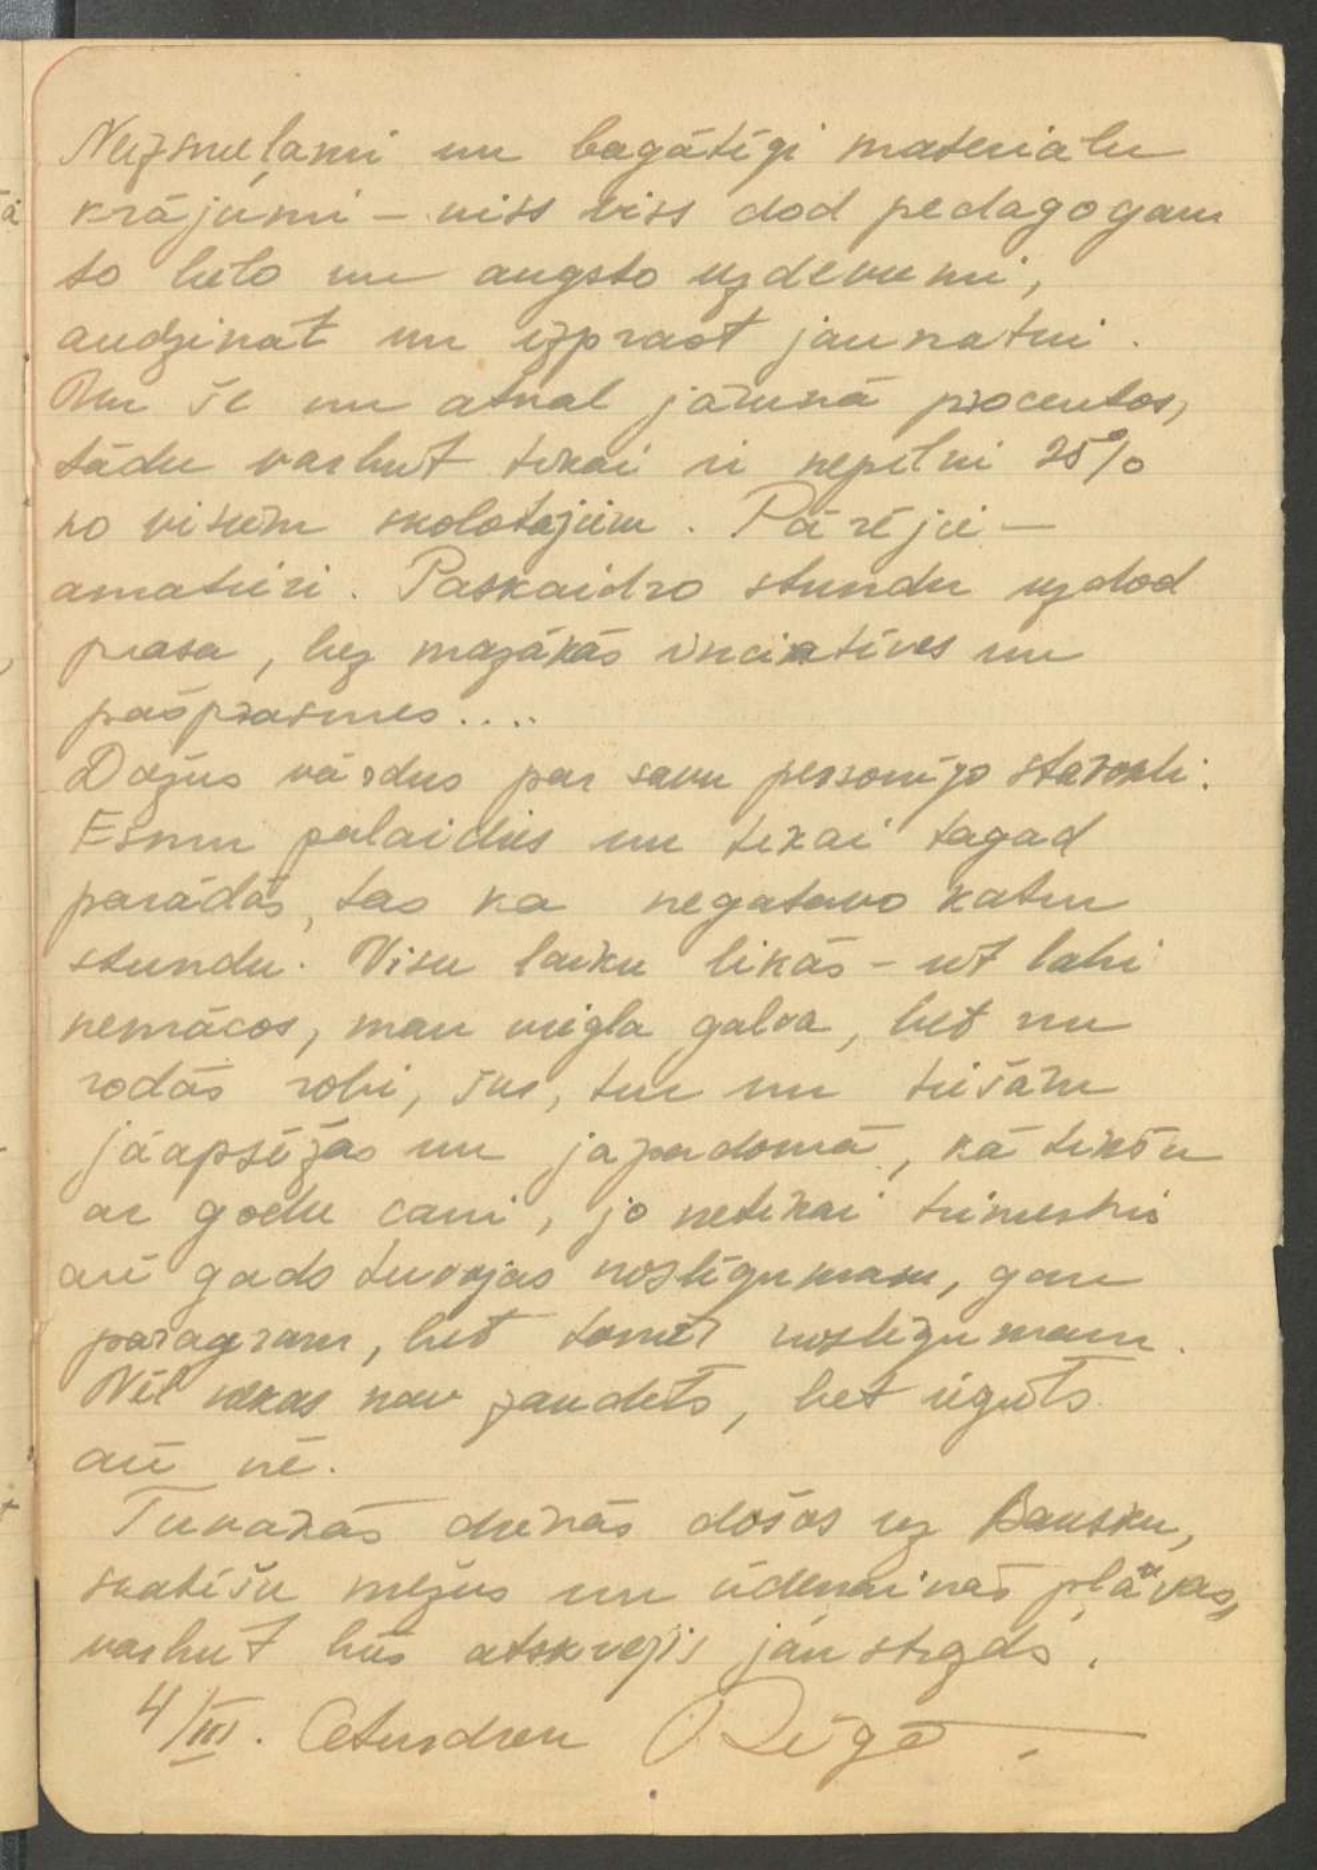 Neizsmeļami un bagātīgi materialu
krājumi – viss viss dod pedagogam
to lielo un augsto uzdevumi,
audzinat un izprast jaunatni.
Un še nu atkal jārunā procentos,
tādu varbut tikai ir nepilni 25%
no visiem skolotajiem. Pārējie –
amatieri. Paskaidro stundu uzdod
prasa, bez mazākās inciatīves un
pašprasmes....
Dažus vārdus par savu personīgo stāvokli:
Esmu palaidies un tikai tagad
parādās, tas ka negatavo katru
stundu. Visu laiku likās – iet labi
nemācos, man viegla galva, bet nu
rodās robi, šur, tur nu tiešām
jāapsēžas un japardomā, kā tikšu
ar godu cauri, jo netikai trimestris
arī gads tuvojas noslēgumam, gan
pāragram, bet tomēr noslēgumam.
Vēl nekas nav zaudēts, bet iegūts
arī nē.
Tuvakās dienās došos uz Bausku,
skatīšu mežus un ūdeņainās pļavas,
varbut būs atskrējis jau strazds.
4/III. Ceturdien Rīgā.